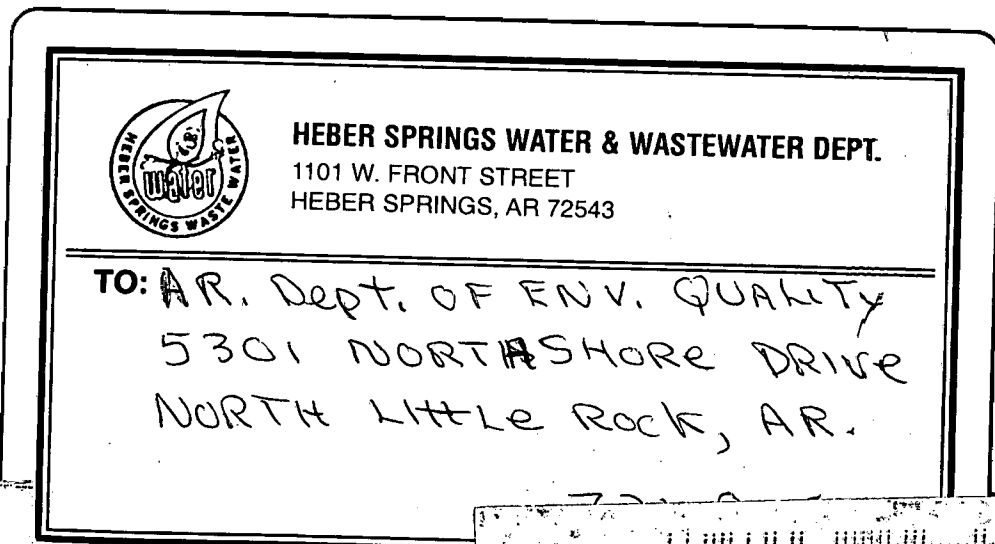 HEBER SPRINGS WASTE WATER
water
HEBER SPRINGS WATER & WASTEWATER DEPT.
1101 W. FRONT STREET
HEBER SPRINGS, AR 72543
TO: AR. Dept. OF ENV. QUALITY
5301 NORTHSHORE DRIVE
NORTH LITTLE ROCK, AR.